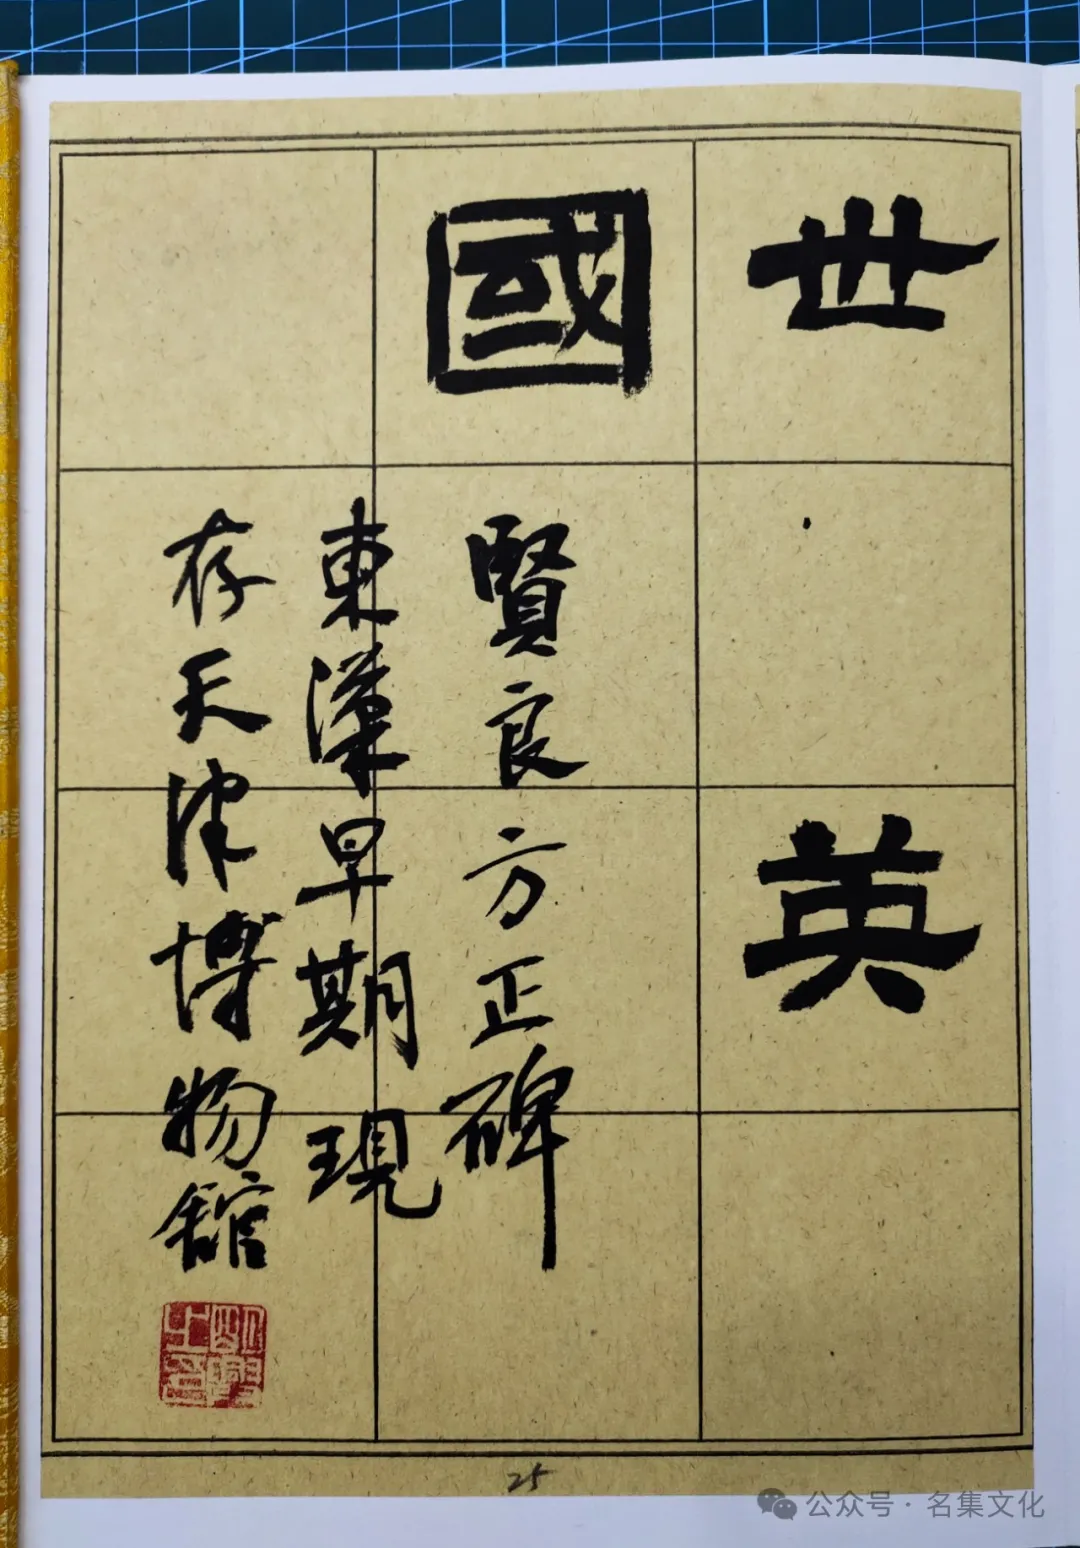 世英
國
賢良方正碑
東漢早期現
存天津博物館
25
公众号·名集文化